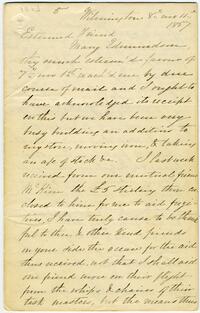 Wilmington 8 mo 11th
1857
Esteemed Friend
Mary Edmundson
Thy much esteemed favor of
7 mo came by due
course of mail and I ought to
have acknowledged its receipt
on this but we have been very
busy building an addition to
my store, moving in, & taking
an a/c of stock &c. I last week
received from our mutual friend
McKim the £5 Sterling thou en-
closed to him for me to aid fugi-
tives, I have truly cause to be thank-
ful to thee, & other kind friends
on your side the ocean for the aid
thus received, not that I shall aid
one friend more on their flight
from the whips & chains of their
task masters, but the means thus